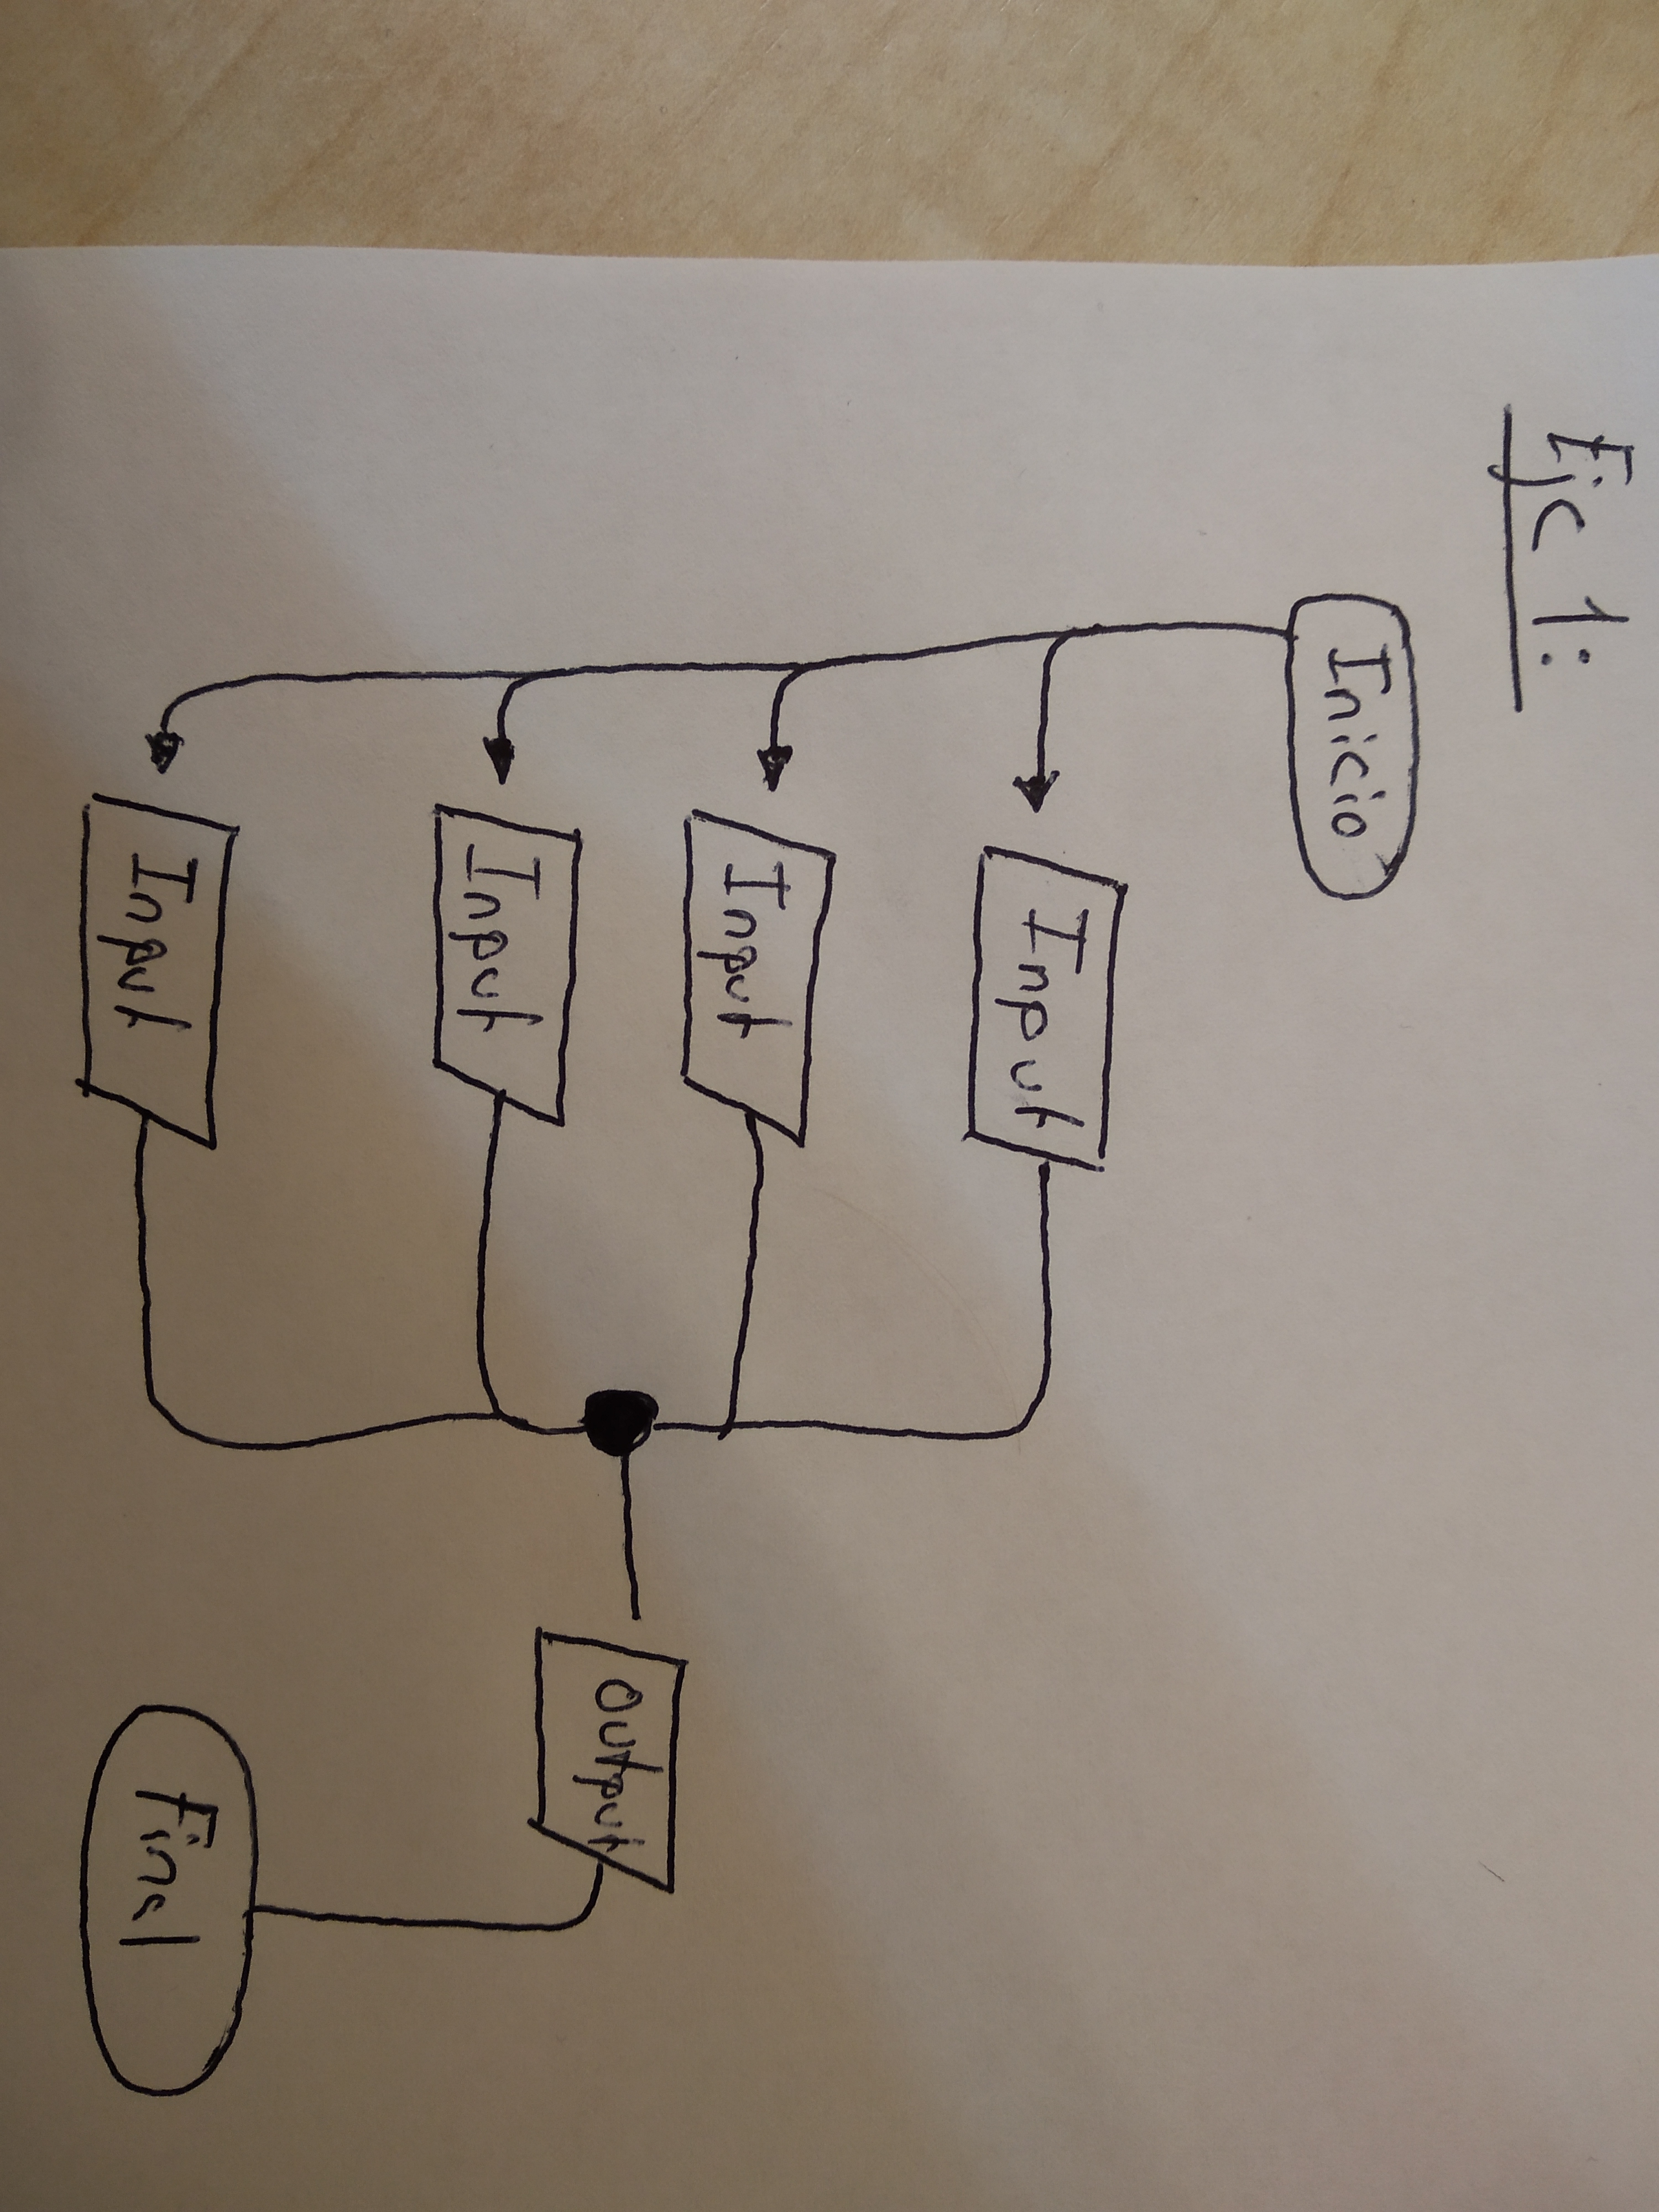 Ejc 1:
Inicio
Input
Input
Input
Input
Output
Final